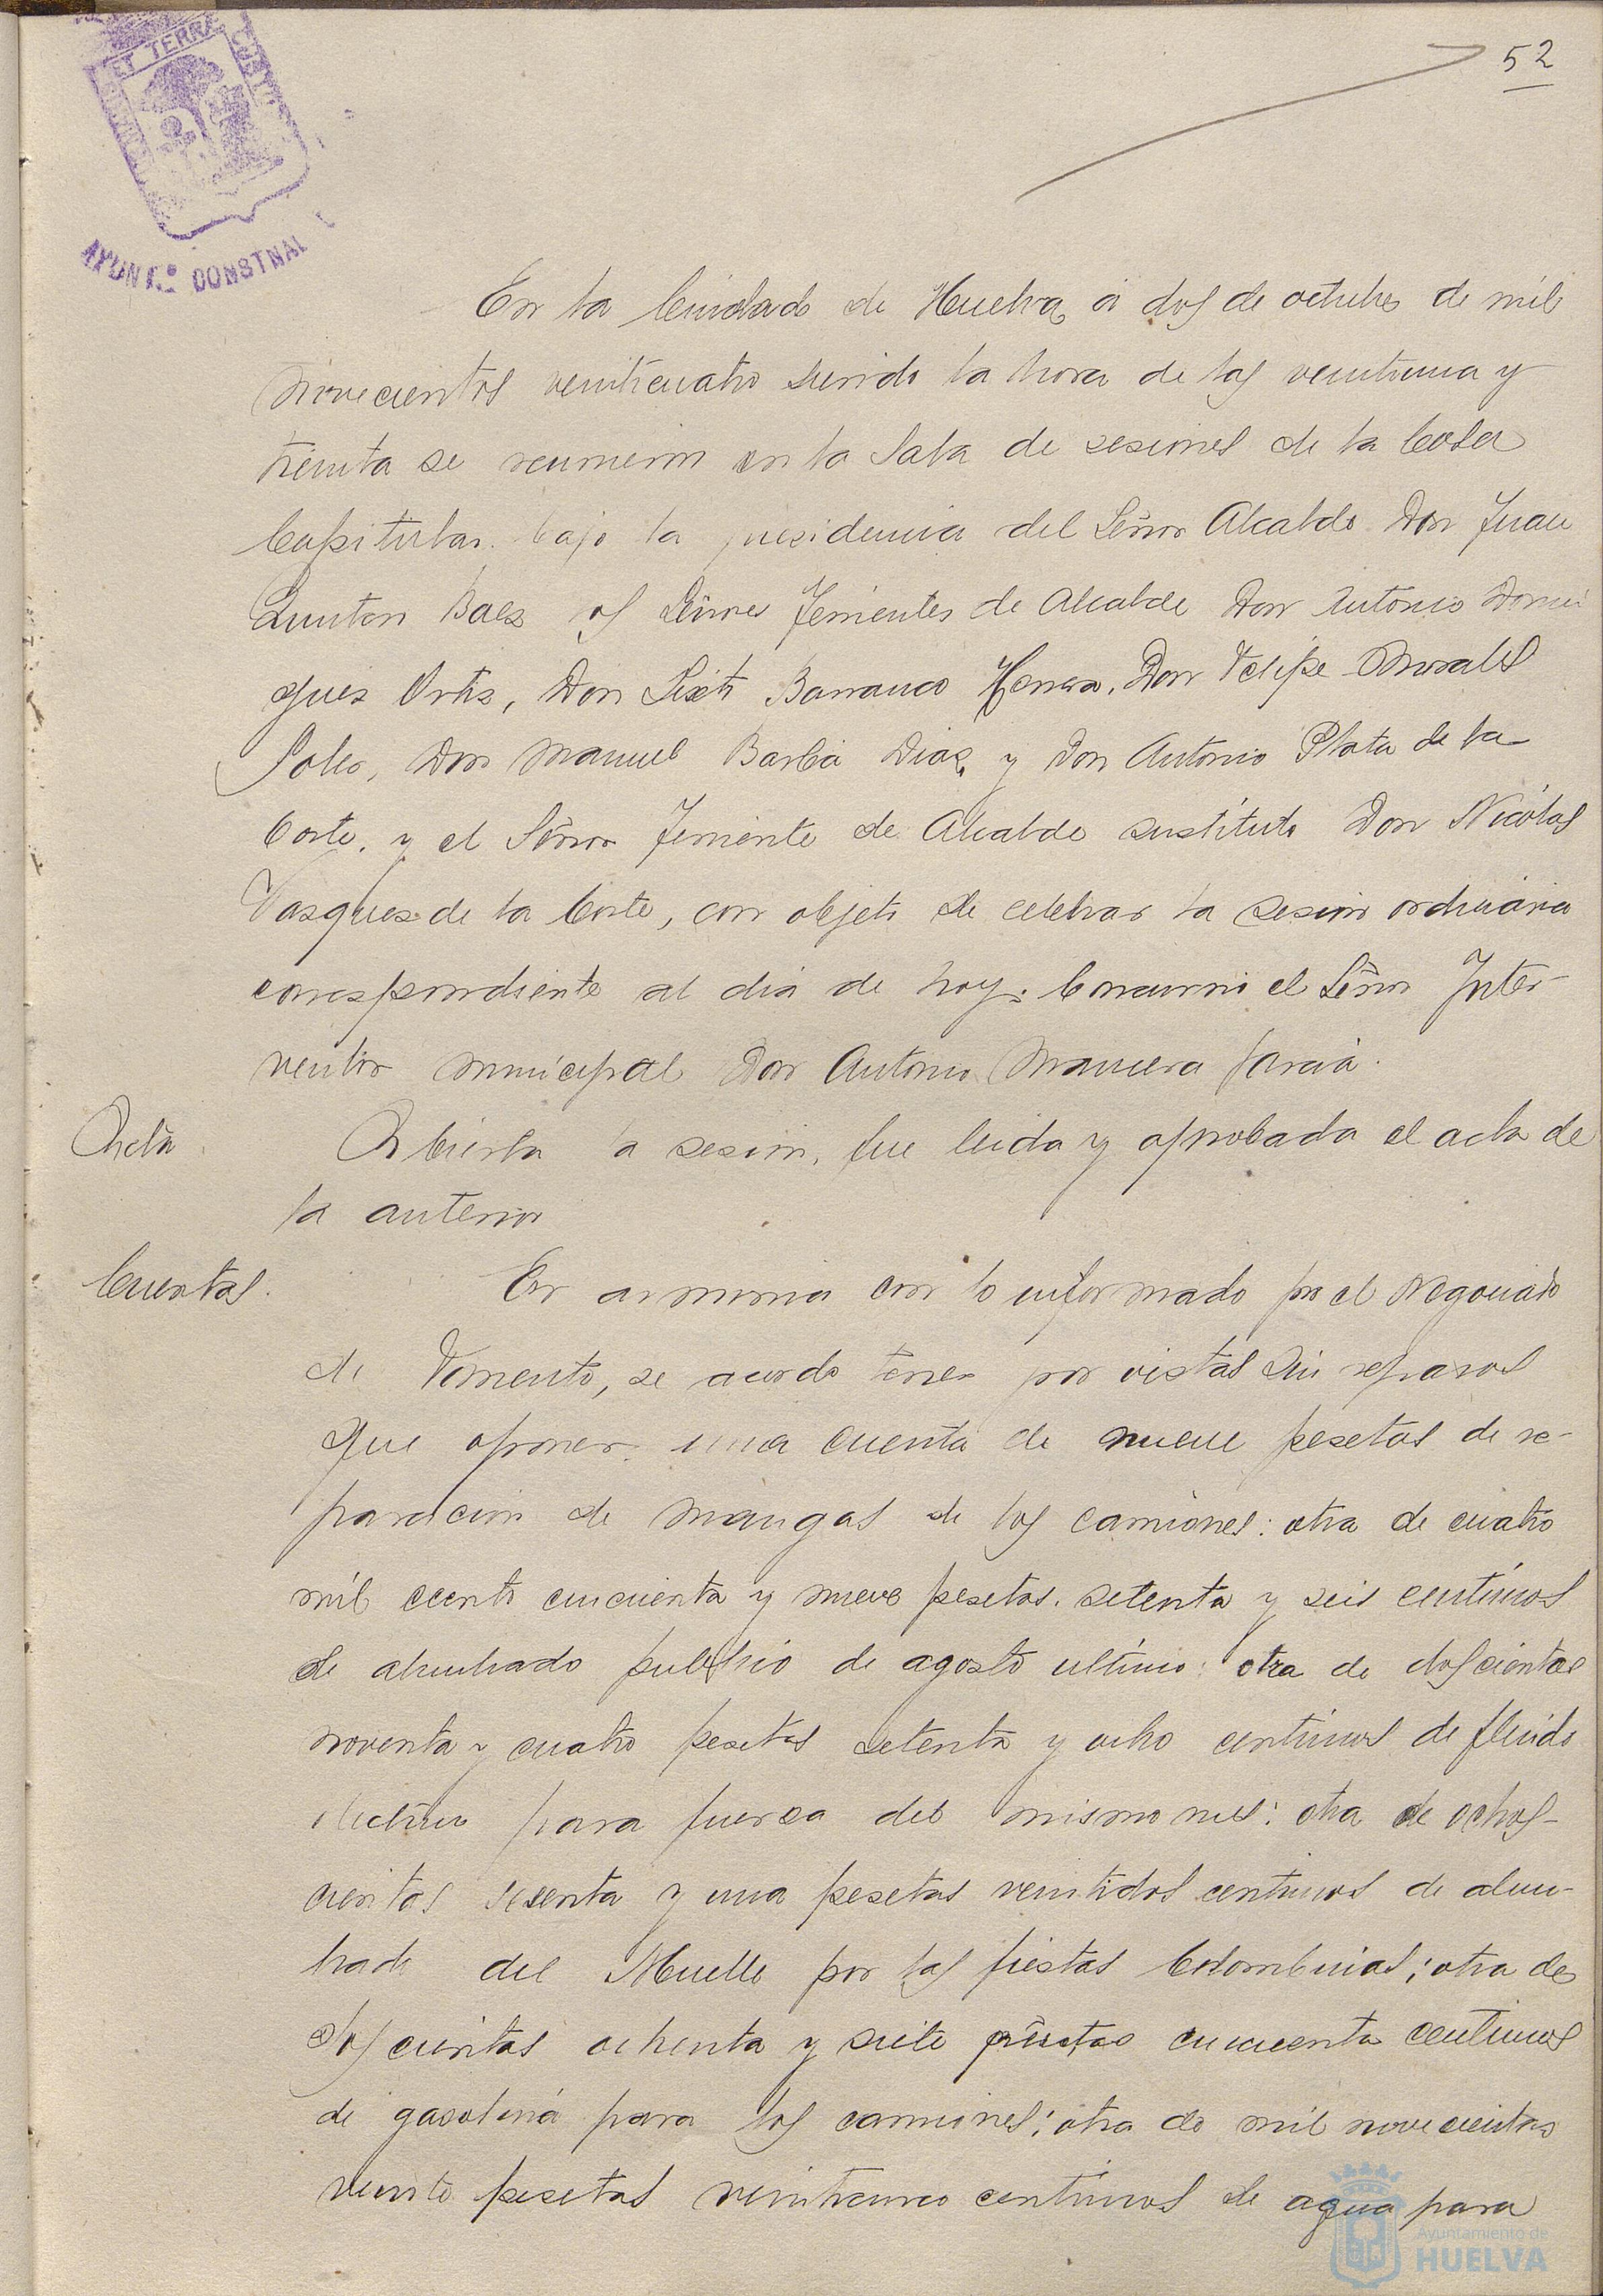 52
ET TERRAE CUSTO
AYUNT.º CONSTNAL
En la Ciudad de Huelva, a dos de octubre de mil
novecientos veinticuatro siendo la hora de las veintiuna y
treinta se reunieron en la Sala de sesiones de la Casa
Capitular. bajo la presidencia del Señor Alcalde Don Juan
Quintero Baez los Señores Tenientes de Alcalde Don Antonio Domin
guez Ortiz, Don Sixto Barranco Herrera, Don Felipe Morales
Don Manuel Barba Diaz, y Don Antonio Plata de la
Corte, y el Señor Teniente de Alcalde sustituto Don Nicolas
Vazquez de la Corte, con objeto de celebrar la sesion ordinaria
correspondiente al dia de hoy. Concurrio el Señor Inter-
ventor municipal Don Antonio Mancera Garcia.
Acta. Abierta la sesion, fue leida y aprobada el acta de
la anterior
Cuentas. En armonia con lo informado por el Negociado
de Fomento, se acordo tener por vistas sin reparos
que oponer. una cuenta de nueve pesetas de re-
paracion de mangas de los camiones: otra de cuatro
mil ciento cincuenta y nueve pesetas. setenta y seis centimos
de alumbrado publico de agosto ultimo: otra de doscientas
noventa y cuatro pesetas setenta y ocho centimos de fluido
electrico para fuerza del mismo mes: otra de ochos-
cientas sesenta y una pesetas veintidos centimos de alum-
brado del Muelle por las fiestas Colombinas; otra de
doscientas ochenta y siete pesetas cincuenta centimos
de gasolina para los camiones; otra de mil novecientas
veinte pesetas veinticinco centimos de agua para
Ayuntamiento de
HUELVA